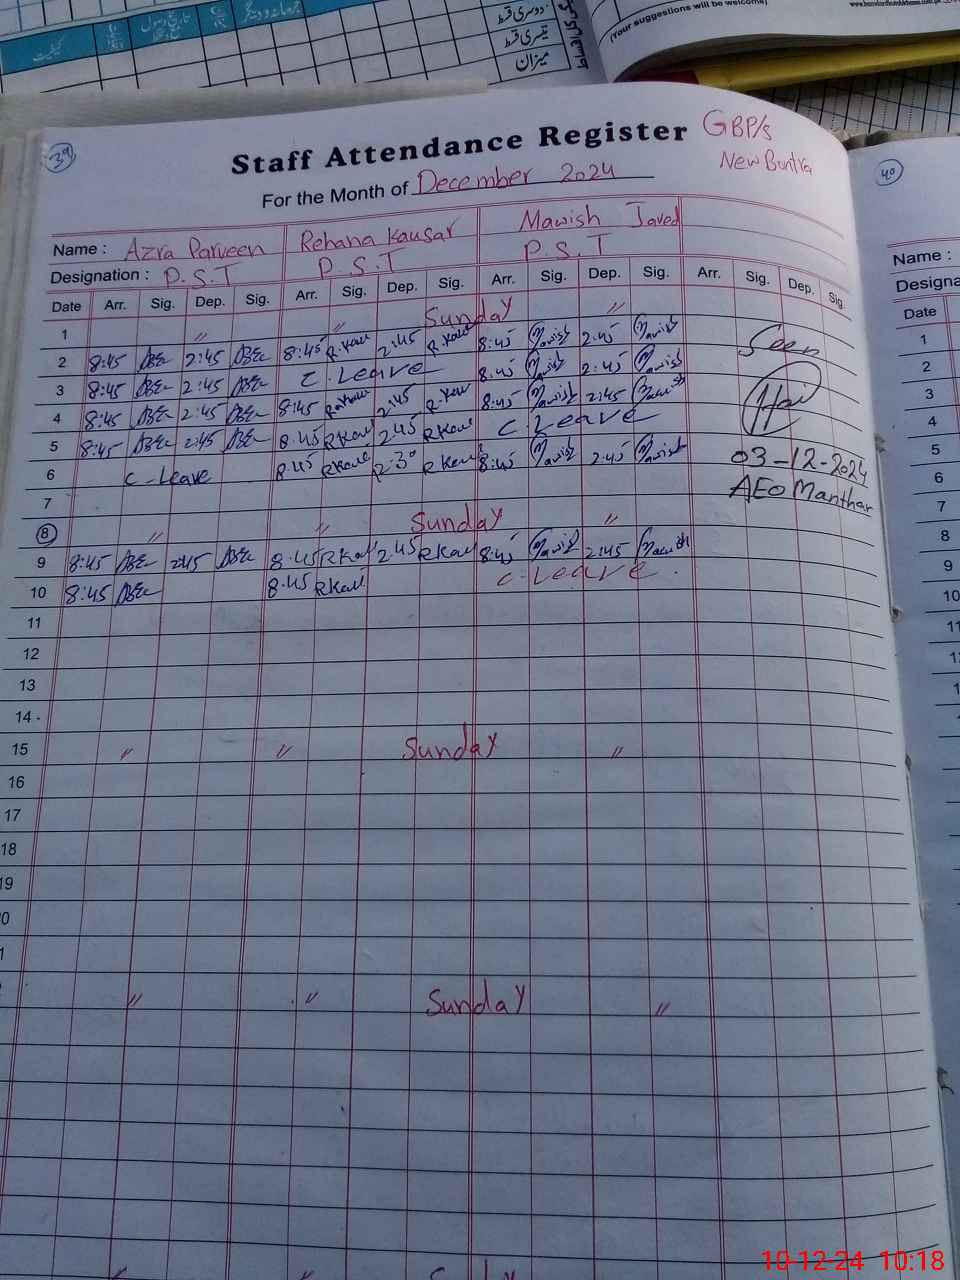 دوسری قسط
تیسری قسط
میزان
کیفیت
(Your suggestions will be welcome)
39
Staff Attendance Register GBP/s
New Buntra
For the Month of December 2024
40
Name : Azra Parveen Rehana Kausar Mawish Javed
Name :
Designation : P.S.T P.S.T P.S.T
Date Arr. Sig. Dep. Sig. Arr. Sig. Dep. Sig. Arr. Sig. Dep. Sig. Arr. Sig. Dep. Sig.
Date
1 〃 〃 Sunday 〃
2 8:45 2:45 8:45 R.Kau 2:45 R.Kau 8:45 Mawish 2:45 Mawish Seen
3 8:45 2:45 C.Leave 8:45 Mawish 2:45 Mawish
4 8:45 2:45 8:45 2:45 R.Kau 8:45 Mawish 2:45 Mawish
5 8:45 2:45 8:45 RKau 2:45 RKau C.Leave
6 C-Leave 8:45 RKau 2:30 RKau 8:45 Mawish 2:45 Mawish 03-12-2024
7 AEO Manthar
8 〃 〃 Sunday 〃
9 8:45 2:45 8:45 RKau 2:45 RKau 8:45 Mawish 2:45 Mawish
10 8:45 8:45 RKau C.Leave.
11
12
13
14
15 〃 〃 Sunday 〃
16
17
18
19
〃 〃 Sunday 〃
1
2
3
4
5
6
7
8
9
10
11
10-12-24 10:18